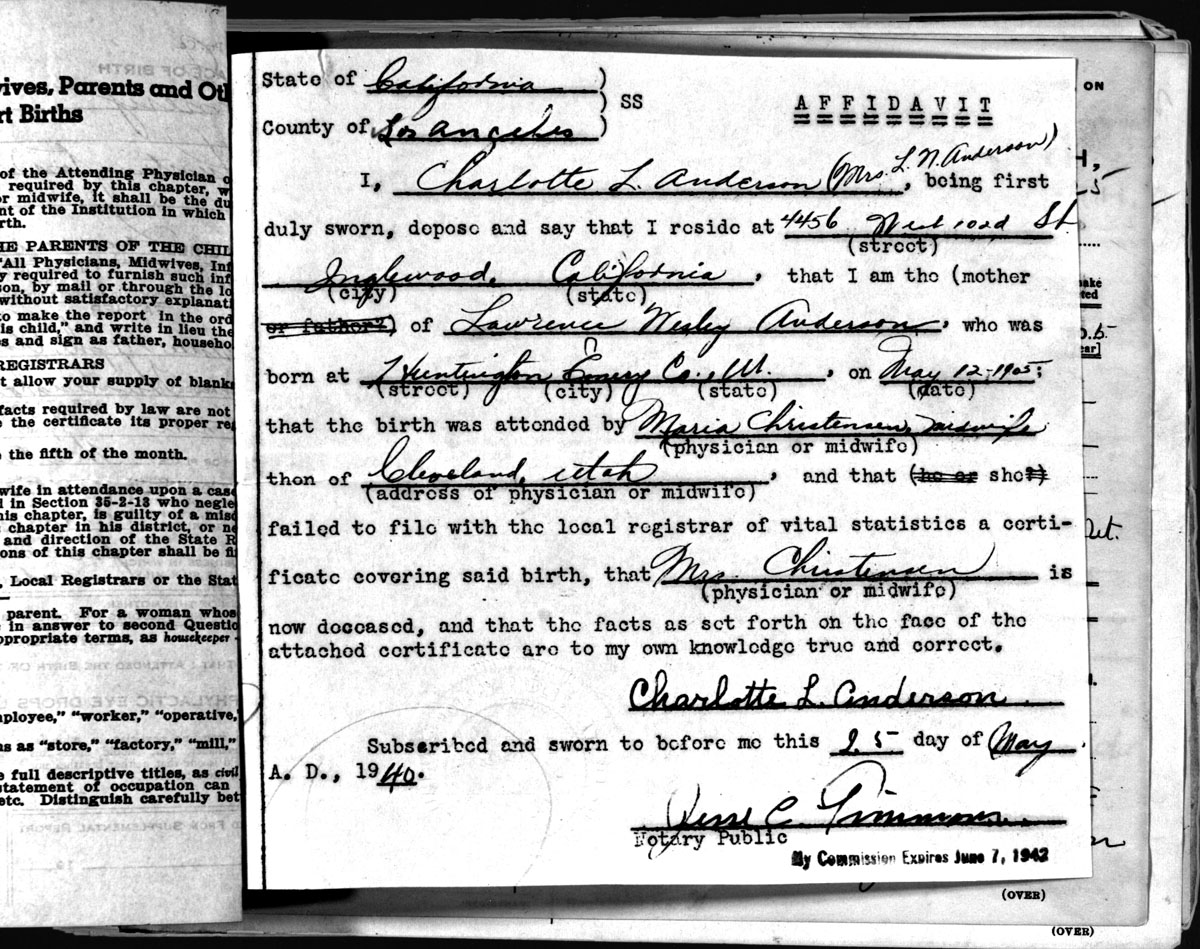 ives, Parents and Oth
rt Births
of the Attending Physician o
required by this chapter, w
or midwife, it shall be the du
nt of the Institution in which
rth.
HE PARENTS OF THE CHIL
"All Physicians, Midwives, Inf
y required to furnish such inf
son, by mail or through the lo
without satisfactory explanati
to make the report in the ord
is child," and write in lieu the
s and sign as father, househo
REGISTRARS
t allow your supply of blanks
facts required by law are not
e the certificate its proper reg
e the fifth of the month.
wife in attendance upon a case
d in Section 35-2-13 who negle
his chapter, is guilty of a misd
chapter in his district, or ne
and direction of the State R
ons of this chapter shall be fi
, Local Registrars or the Stat
parent. For a woman whos
e in answer to second Questio
ppropriate terms, as housekeeper -
mployee," "worker," "operative,
ns as "store," "factory," "mill,"
e full descriptive titles, as civil
statement of occupation can
etc. Distinguish carefully bet
State of California )
) SS
County of Los Angeles )
AFFIDAVIT
I, Charlotte L. Anderson (Mrs. L. N. Anderson), being first
duly sworn, depose and say that I reside at 4456 West 102d St
(street)
Inglewood, California, that I am the (mother
(city) (state)
or father?) of Lawrence Wesley Anderson, who was
born at Huntington Emery Co., Ut., on May 12-1905;
(street) (city) (state) (date)
that the birth was attended by Maria Christensen, midwife
(physician or midwife)
then of Cleveland, Utah, and that (he or she?)
(address of physician or midwife)
failed to file with the local registrar of vital statistics a certi-
ficate covering said birth, that Mrs. Christensen is
(physician or midwife)
now deceased, and that the facts as set forth on the face of the
attached certificate are to my own knowledge true and correct.
Charlotte L. Anderson
Subscribed and sworn to before me this 25 day of May
A. D., 1940.
C. Timmons
Notary Public
My Commission Expires June 7, 1942
ON
(OVER)
(OVER)